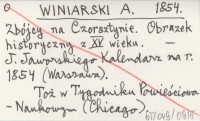 WINIARSKI A. 1854.
Zbójcy na Czorsztynie. Obrazek
historyczny z XV wieku. —
J. Jaworskiego Kalendarz na r.
1854 (Warszawa).
Toż w Tygodniku Powieściowo
- Naukowym (Chicago).